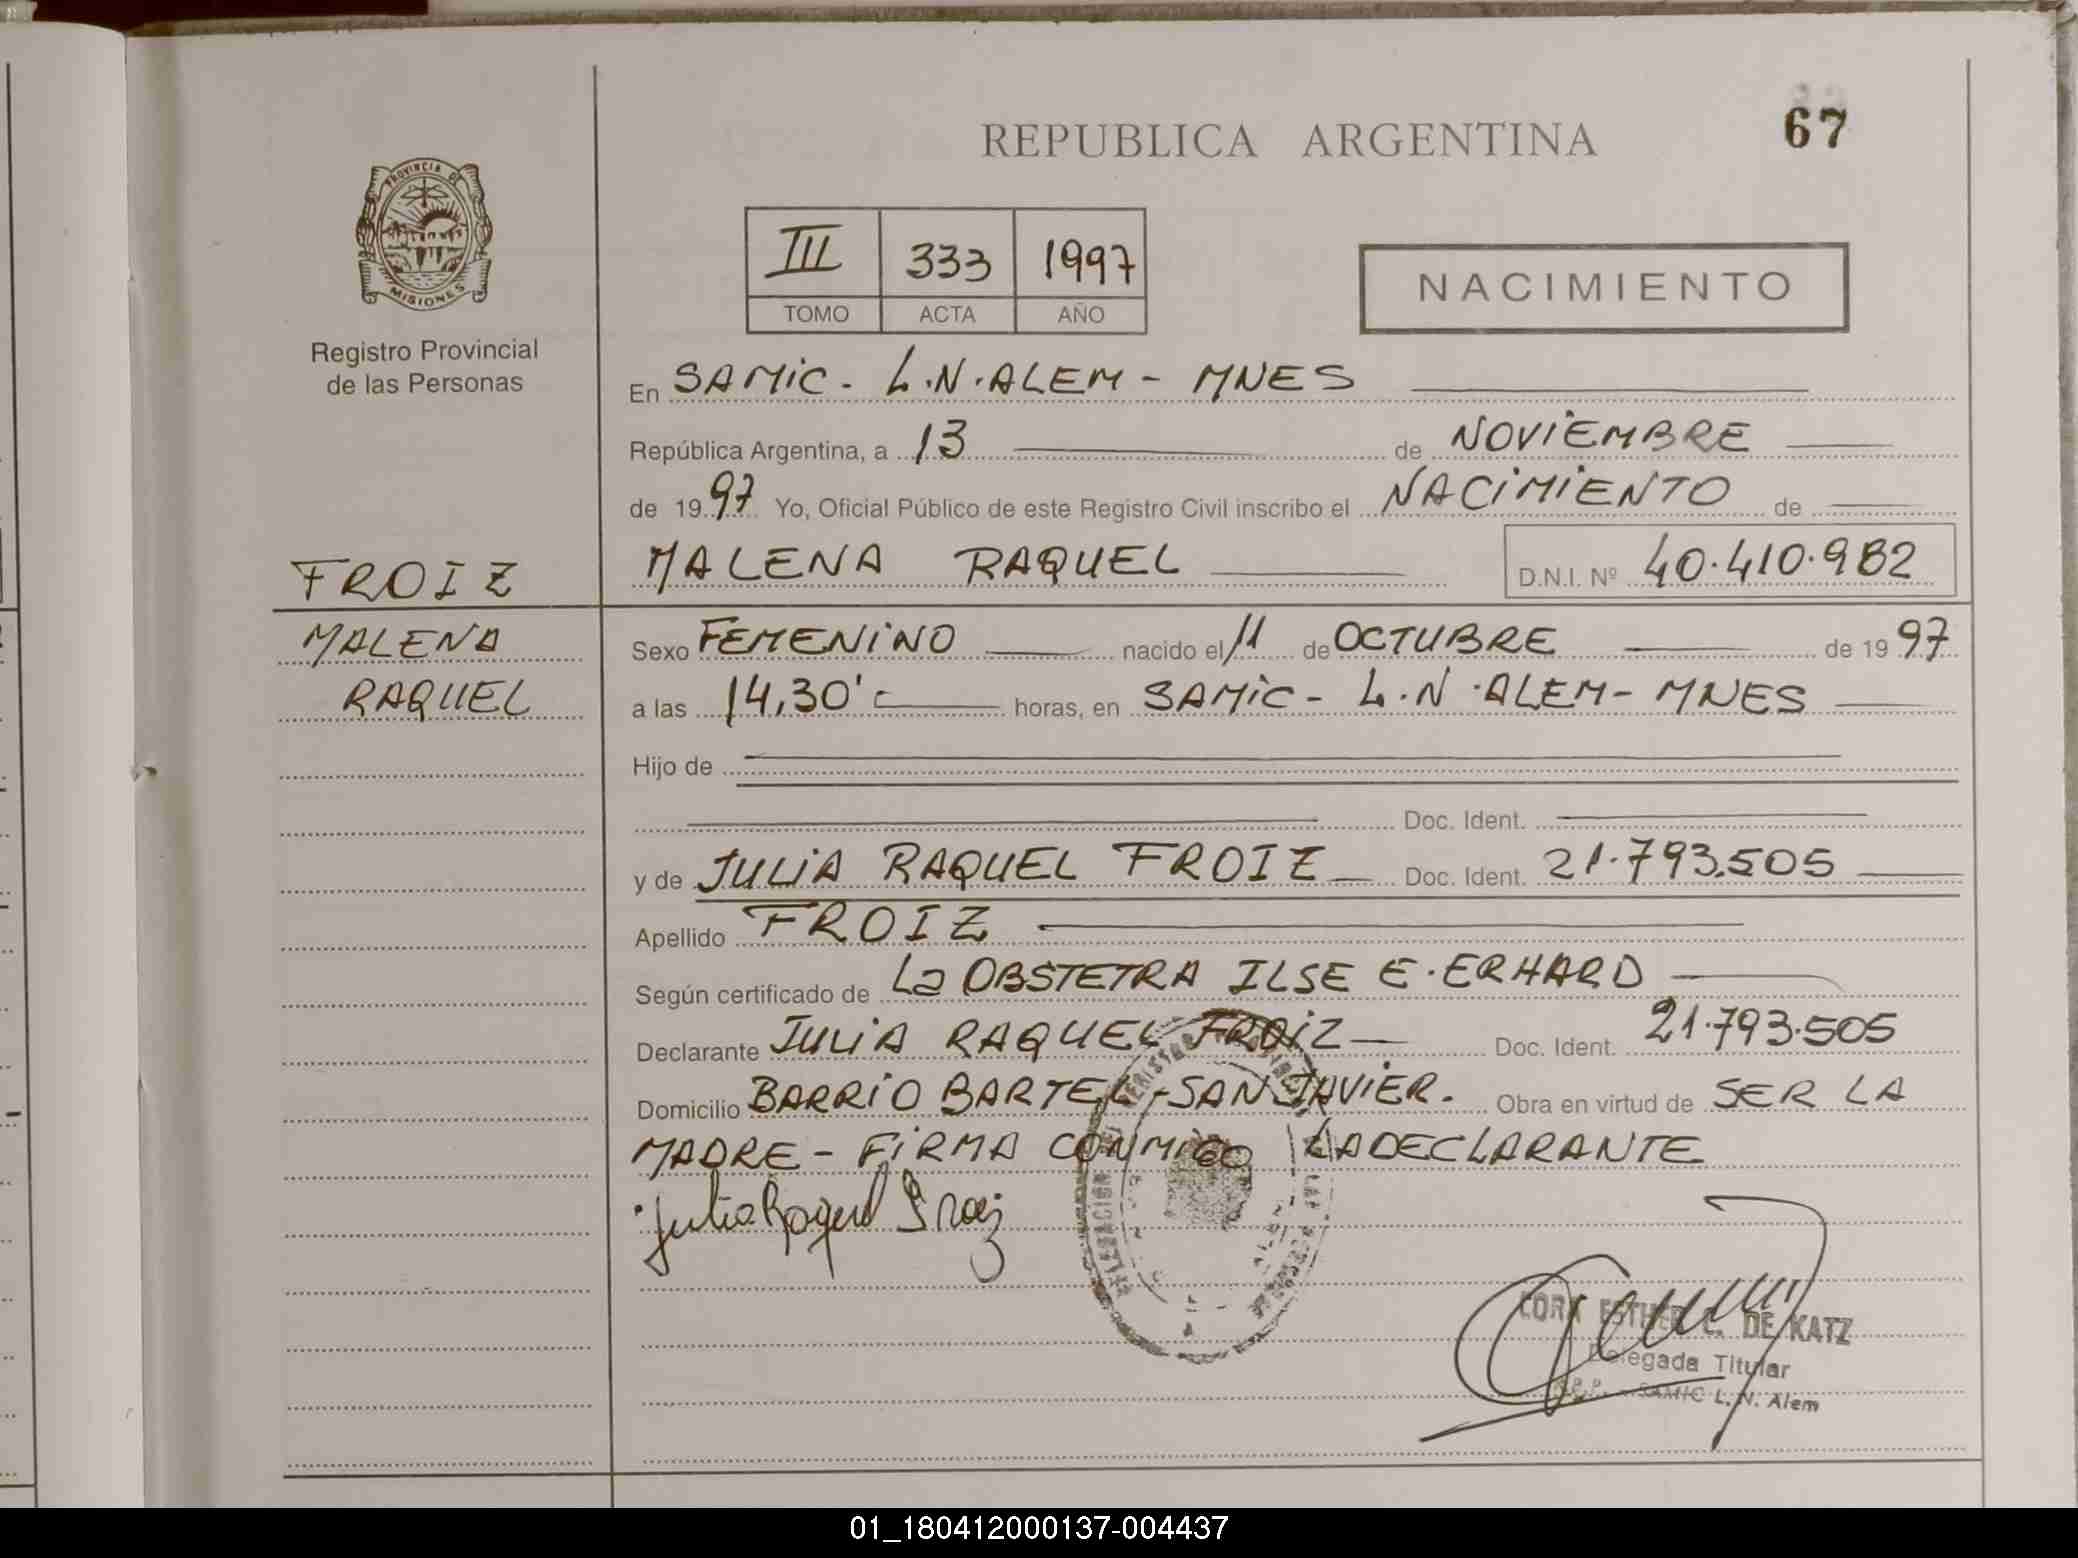 REPUBLICA ARGENTINA
67
PROVINCIA DE
MISIONES
Registro Provincial
de las Personas
III 333 1997
TOMO ACTA AÑO
NACIMIENTO
En SAMIC - L.N. ALEM - MNES
República Argentina, a 13 de NOVIEMBRE
de 1997 Yo, Oficial Público de este Registro Civil inscribo el NACIMIENTO de
MALENA RAQUEL D.N.I. Nº 40.410.982
FROIZ
MALENA
RAQUEL
Sexo FEMENINO nacido el 11 de OCTUBRE de 1997
a las 14,30' horas, en SAMIC - L.N. ALEM - MNES
Hijo de
Doc. Ident.
y de JULIA RAQUEL FROIZ Doc. Ident. 21.793.505
Apellido FROIZ
Según certificado de La OBSTETRA ILSE E. ERHARD
Declarante JULIA RAQUEL FROIZ Doc. Ident. 21.793.505
Domicilio BARRIO BARTEL - SAN JAVIER. Obra en virtud de SER LA
MADRE - FIRMA CONMIGO LA DECLARANTE
Julia Raquel Froiz
CORA ESTHER C. DE KATZ
Delegada Titular
SAMIC L. N. Alem
01_180412000137-004437